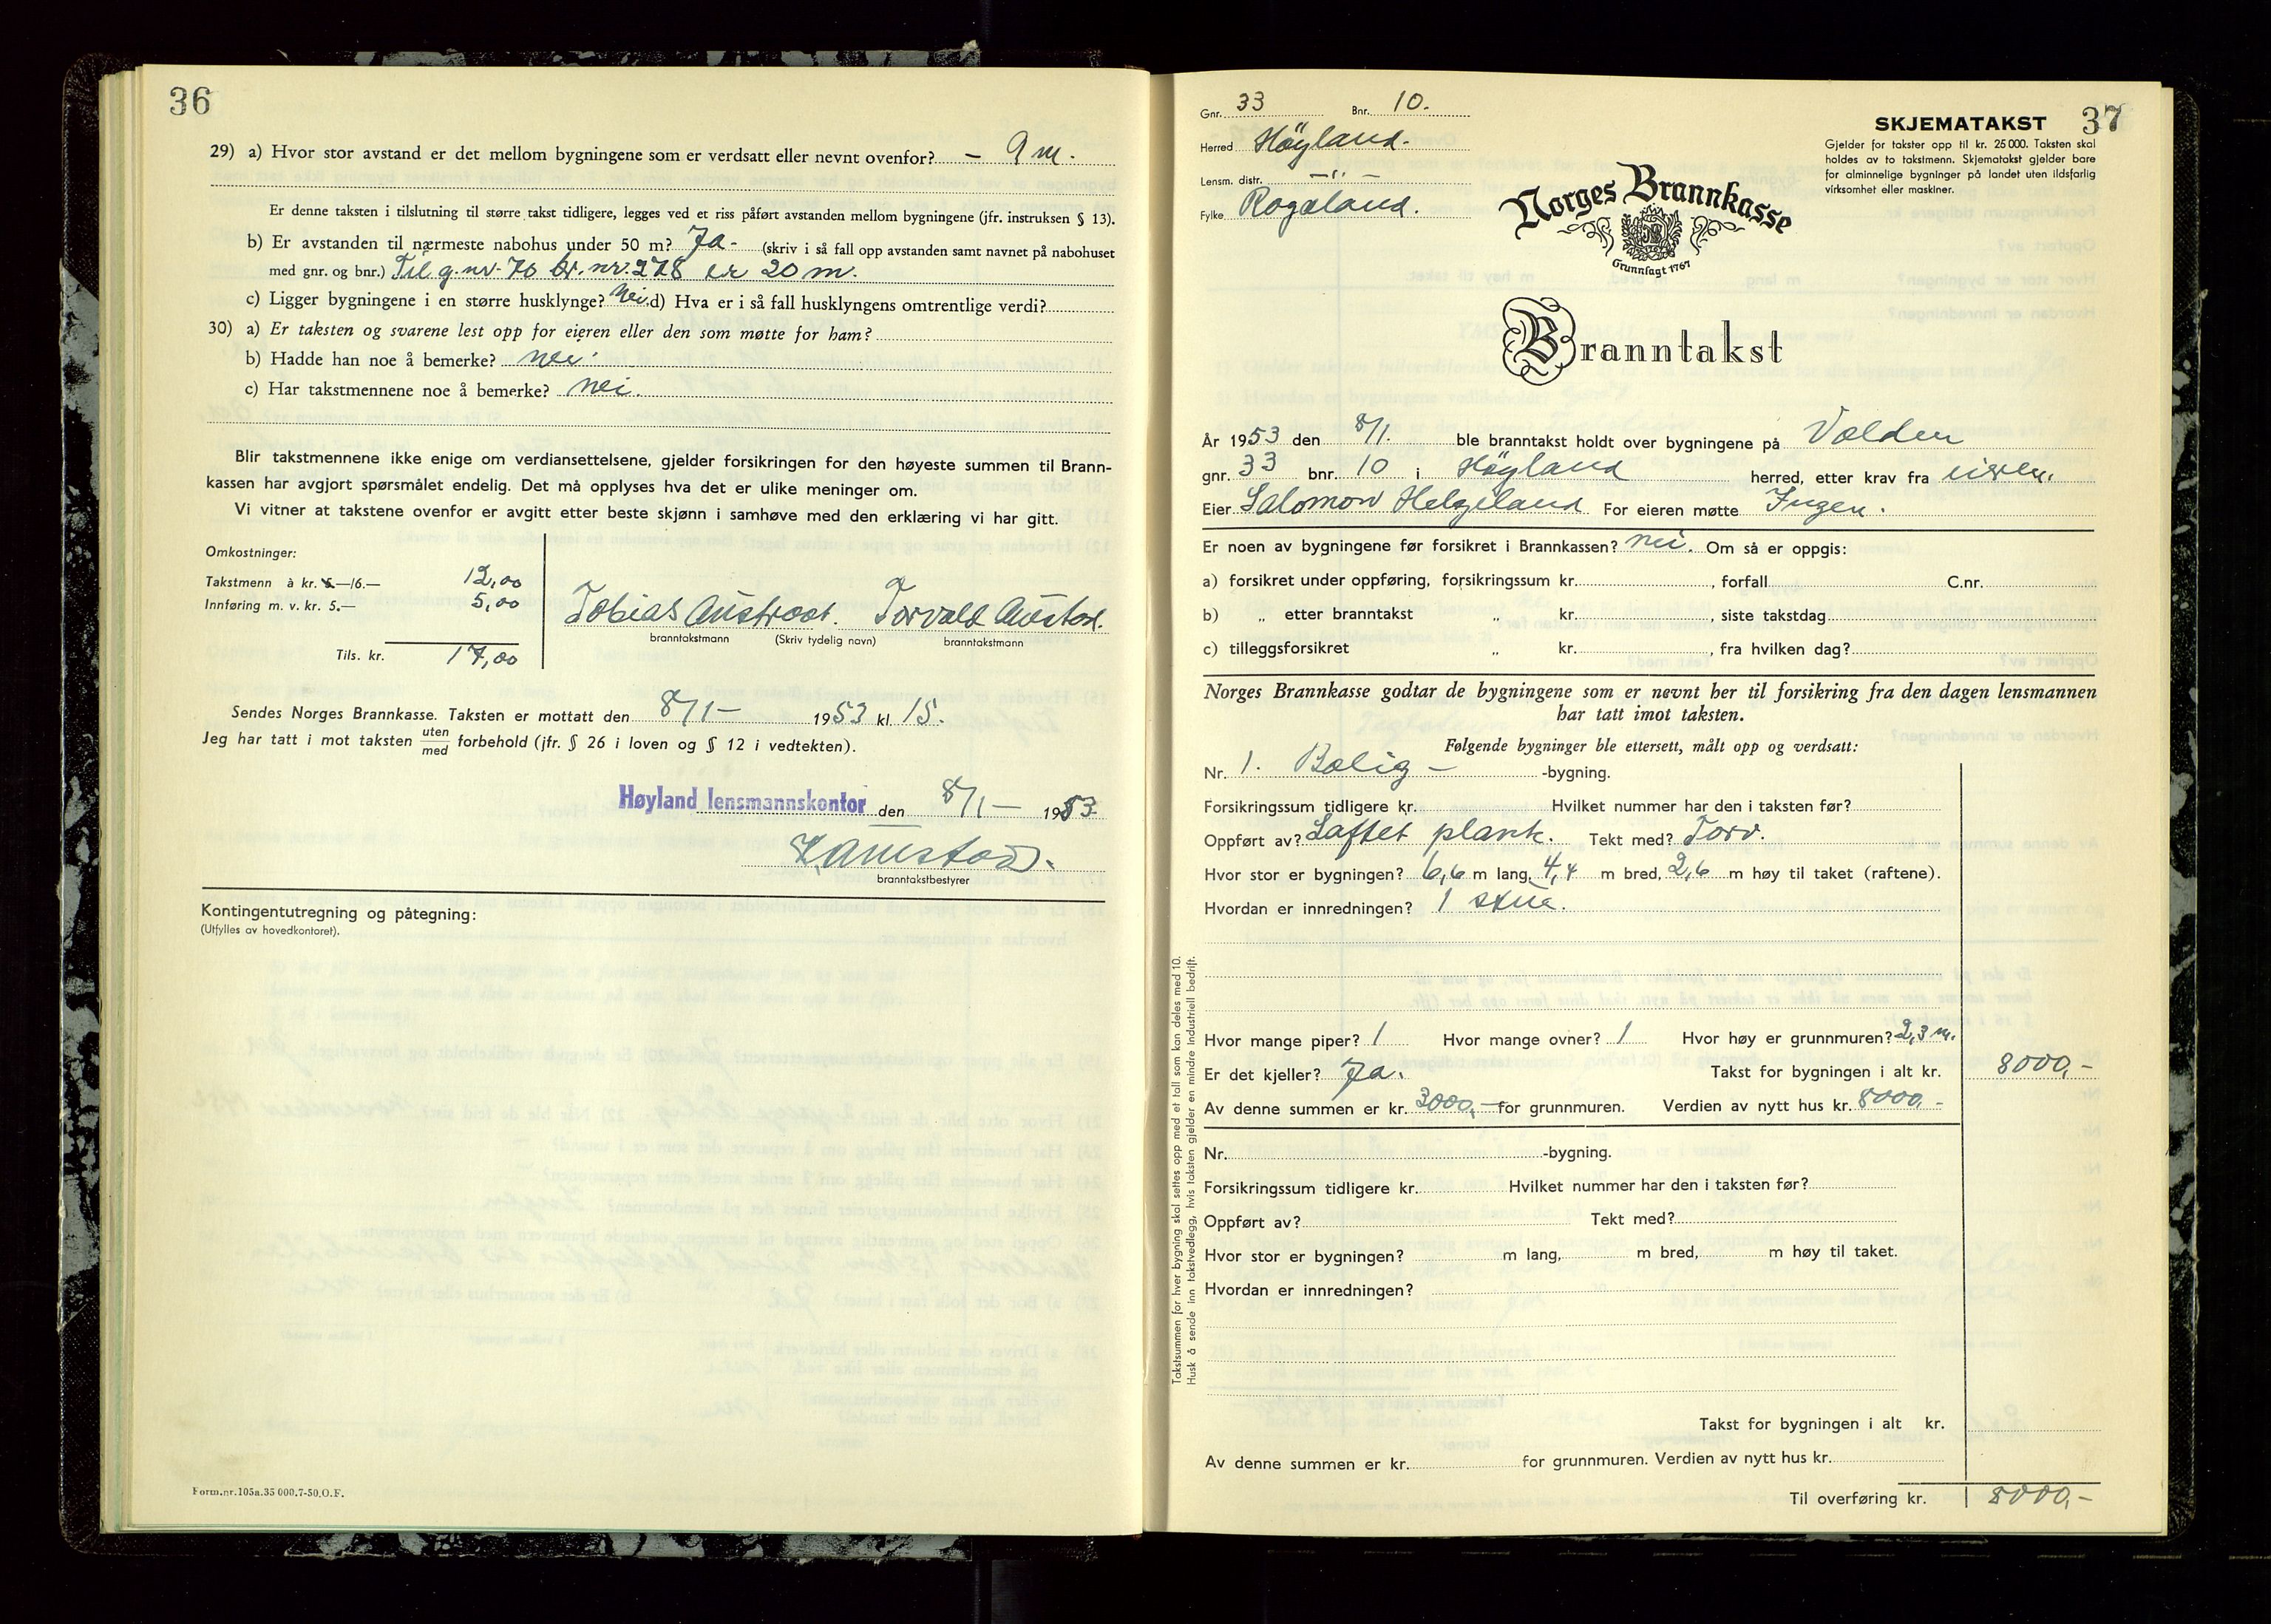 36
29) a) Hvor stor avstand er det mellom bygningene som er verdsatt eller nevnt ovenfor? – 9 m.
Er denne taksten i tilslutning til større takst tidligere, legges ved et riss påført avstanden mellom bygningene (jfr. instruksen § 13).
b) Er avstanden til nærmeste nabohus under 50 m? Ja - (skriv i så fall opp avstanden samt navnet på nabohuset
med gnr. og bnr.) Til g.nr. 70 br.nr. 278 er 20 m.
c) Ligger bygningene i en større husklynge? Nei d) Hva er i så fall husklyngens omtrentlige verdi?
30) a) Er taksten og svarene lest opp for eieren eller den som møtte for ham?
b) Hadde han noe å bemerke? nei.
c) Har takstmennene noe å bemerke? nei.
Blir takstmennene ikke enige om verdiansettelsene, gjelder forsikringen for den høyeste summen til Brann-
kassen har avgjort spørsmålet endelig. Det må opplyses hva det er ulike meninger om.
Vi vitner at takstene ovenfor er avgitt etter beste skjønn i samhøve med den erklæring vi har gitt.
Omkostninger:
Takstmenn à kr. 5.—/6.— 12,00
Innføring m. v. kr. 5.— 5,00
Tils. kr. 17,00
Tobias Austrått. Torvald
branntakstmann (Skriv tydelig navn) branntakstmann
Sendes Norges Brannkasse. Taksten er mottatt den 8/1 – 1953 kl. 15.
Jeg har tatt i mot taksten uten/med forbehold (jfr. § 26 i loven og § 12 i vedtekten).
Høyland lensmannskontor den 8/1 – 1953.
branntakstbestyrer
Kontingentutregning og påtegning:
(Utfylles av hovedkontoret).
Form.nr.105a.35 000.7-50.O.F.
Gnr. 33 Bnr. 10.
Herred Höyland.
Lensm. distr. –"–
Fylke Rogaland.
SKJEMATAKST 37
Gjelder for takster opp til kr. 25 000. Taksten skal
holdes av to takstmenn. Skjematakst gjelder bare
for alminnelige bygninger på landet uten ildsfarlig
virksomhet eller maskiner.
Norges Brannkasse
Grunnlagt 1767
Branntakst
År 1953 den 8/1. ble branntakst holdt over bygningene på Volden
gnr. 33 bnr. 10 i Höyland herred, etter krav fra eieren.
Eier Salomon Helgeland For eieren møtte Ingen.
Er noen av bygningene før forsikret i Brannkassen? nei. Om så er oppgis:
a) forsikret under oppføring, forsikringssum kr. , forfall C.nr.
b) „ etter branntakst „ kr. , siste takstdag
c) tilleggsforsikret „ kr. , fra hvilken dag?
Norges Brannkasse godtar de bygningene som er nevnt her til forsikring fra den dagen lensmannen
har tatt imot taksten.
Følgende bygninger ble ettersett, målt opp og verdsatt:
Nr. 1. Bolig – -bygning.
Forsikringssum tidligere kr. Hvilket nummer har den i taksten før?
Oppført av? Laftet plank. Tekt med? Torv.
Hvor stor er bygningen? 6,6 m lang, 4,4 m bred, 2,6 m høy til taket (raftene).
Hvordan er innredningen? 1 stue.
Hvor mange piper? 1 Hvor mange ovner? 1 Hvor høy er grunnmuren? 2,3 m.
Er det kjeller? Ja. Takst for bygningen i alt kr. 8000,-
Av denne summen er kr. 3000,- for grunnmuren. Verdien av nytt hus kr. 8000,-
Nr. -bygning.
Forsikringssum tidligere kr. Hvilket nummer har den i taksten før?
Oppført av? Tekt med?
Hvor stor er bygningen? m lang, m bred, m høy til taket.
Hvordan er innredningen?
Takst for bygningen i alt kr.
Av denne summen er kr. for grunnmuren. Verdien av nytt hus kr.
Til overføring kr. 8000,-
Takstsummen for hver bygning skal settes opp med et tall som kan deles med 10.
Husk å sende inn takstvedlegg, hvis taksten gjelder en mindre industriell bedrift.